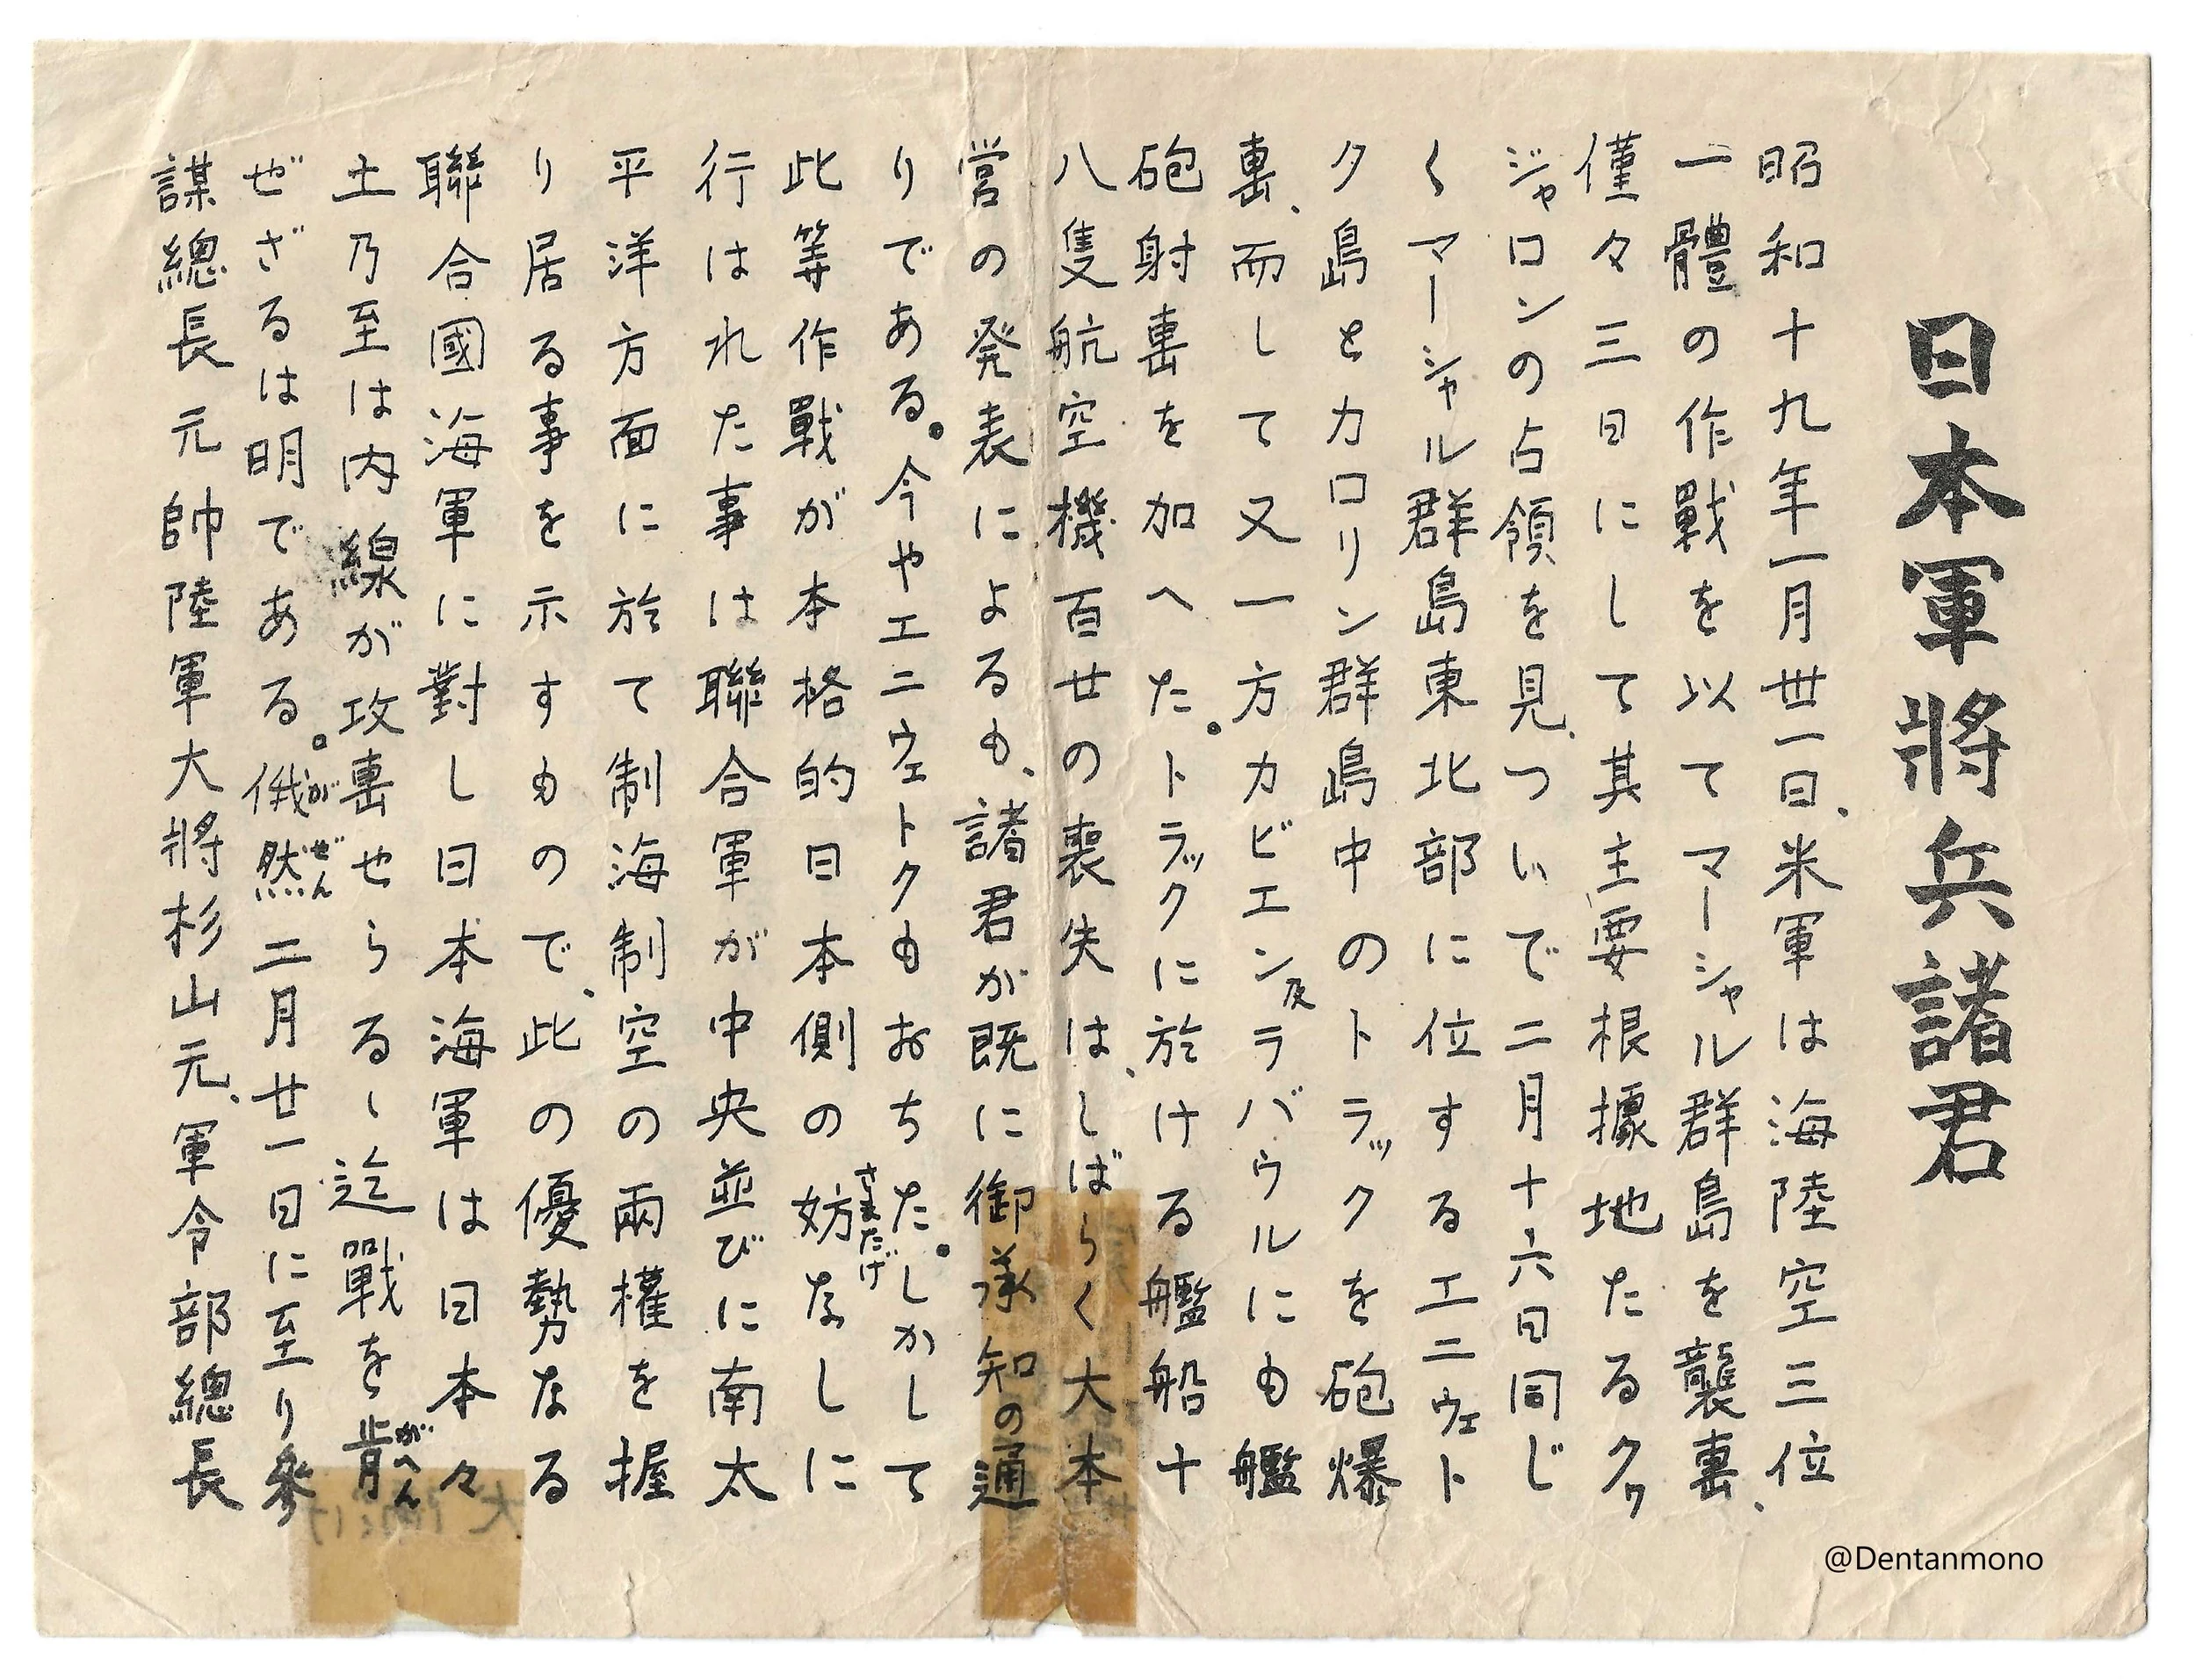 日本軍將兵諸君
昭和十九年一月丗一日、米軍は海陸空三位
一體の作戰を以てマーシャル群島を襲擊、
僅々三日にして其主要根據地たるクヮ
ジャロンの占領を見、ついで二月十六日同じ
くマーシャル群島東北部に位するエニウェト
ク島とカロリン群島中のトラックを砲爆
擊、而して又一方カビエン及ラバウルにも艦
砲射擊を加へた。トラックに於ける艦船十
八隻航空機百廿の喪失は、しばらく大本
営の発表によるも、諸君が既に御承知の通
りである。今やエニウェトクもおちた。しかして
此等作戰が本格的日本側の妨さまたげなしに
行はれた事は聯合軍が中央並びに南太
平洋方面に於て制海制空の兩權を握
り居る事を示すもので、此の優勢なる
聯合國海軍に對し日本海軍は日本々
土乃至は内線が攻擊せらるゝ迄戰を肯がへん
ぜざるは明である。俄が然ぜん二月廿一日に至り參
謀總長元帥陸軍大將杉山元、軍令部總長
@Dentanmono